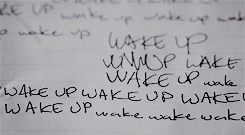 WAKE UP
UP wake up wake up wa
up wake up
WAKE UP
UP WAKE
WAKE UP wake
WAKE UP WAKE UP WAKE
WAKE UP wake wake wake